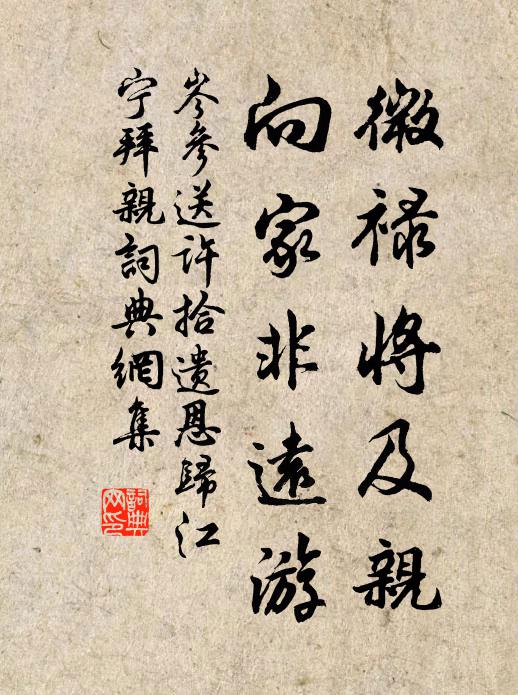 微禄将及親
向家非遠游
岑參送许拾遗恩歸江
宁拜親詞典網集
詞典网印